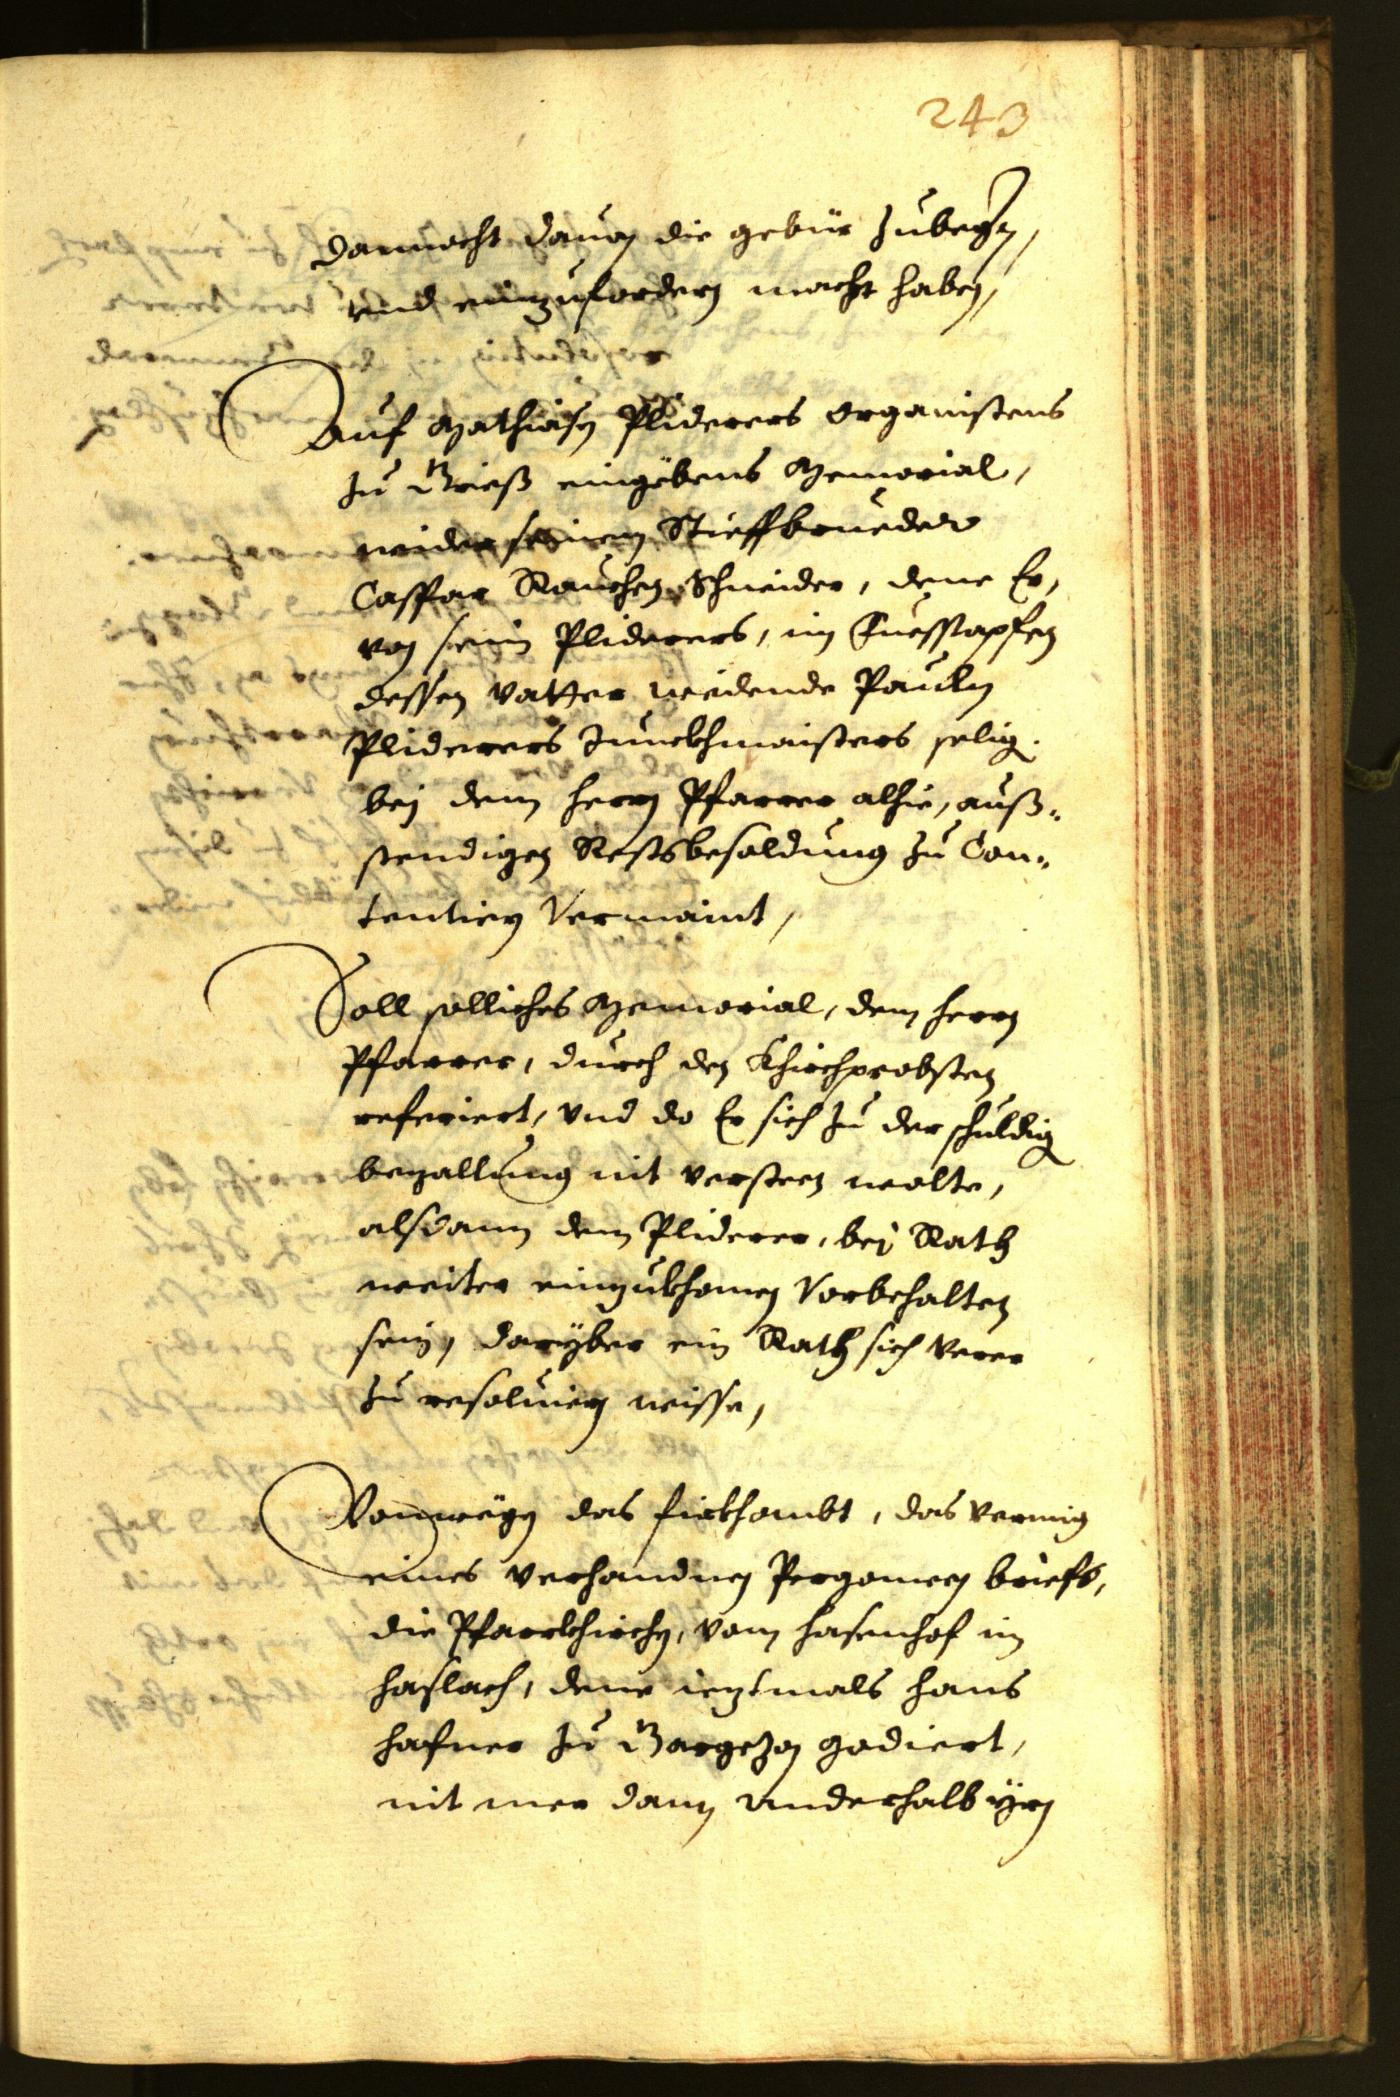 243
dannocht dauon die gebür zubegern,
und einzufordern macht haben,
Auf Mathiasn Pliderers Organistens
zu Grieß eingebens Memorial,
wider seinen Stieffbrueder
Caspar Rauchen Schneider, deme Er,
von sein Pliderers, im Fuesstapfen
dessen Vatter weilende Pauln
Pliderers Junckhmaisters selig.
bej dem herrn Pfarrer alhie, auß-
stendigen Restsbesoldung zu Con-
tentiern vermaint,
Soll solliches Memorial, dem herrn
Pfarrer, durch den Khirchprobsten
referiert, vnd do Er sich zu der schuldig
bezallung nit versteen wolte,
alsdann dem Pliderer, bej Rath
weiter einzukhomen Vorbehalten
sein, darÿber ein Rath sich verer
zu resoluiern wisse,
Vonwegen das fürkhombt, das vermig
eines verhandnen Pergamen briefs,
die Pfarrkhirchen, vom hasenhof im
haslach, deme ieztmals hans
hafner zu Bargezon
nit mer dann anderhalb ÿrn